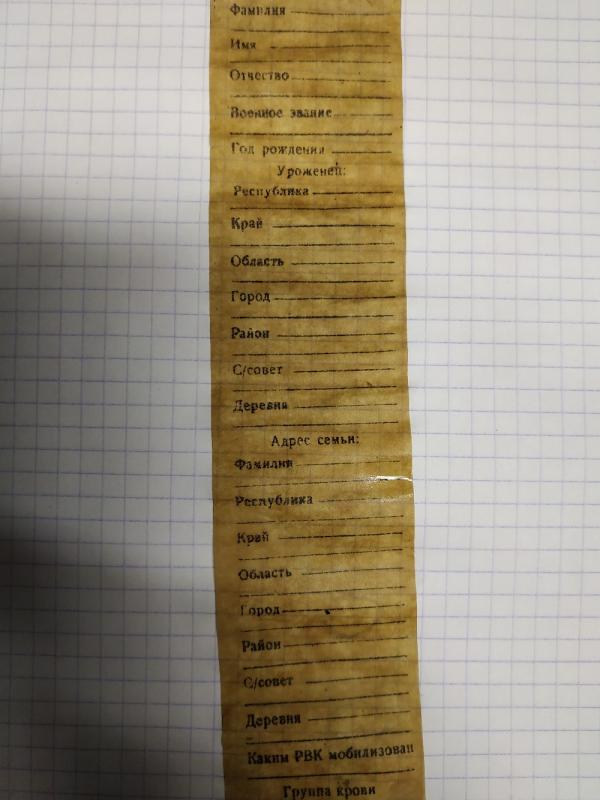 Фамилия
Имя
Отчество
Военное звание
Год рождения
Уроженец:
Республика
Край
Область
Город
Район
С/совет
Деревня
Адрес семьи:
Фамилия
Республика
Край
Область
Город
Район
С/совет
Деревня
Каким РВК мобилизован
Группа крови